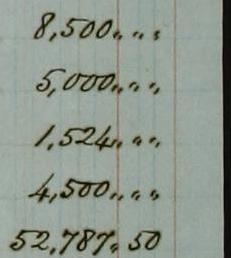 8,500 " " "
5,000 " " "
1,524 " " "
4,500 " " "
52,787 " 50